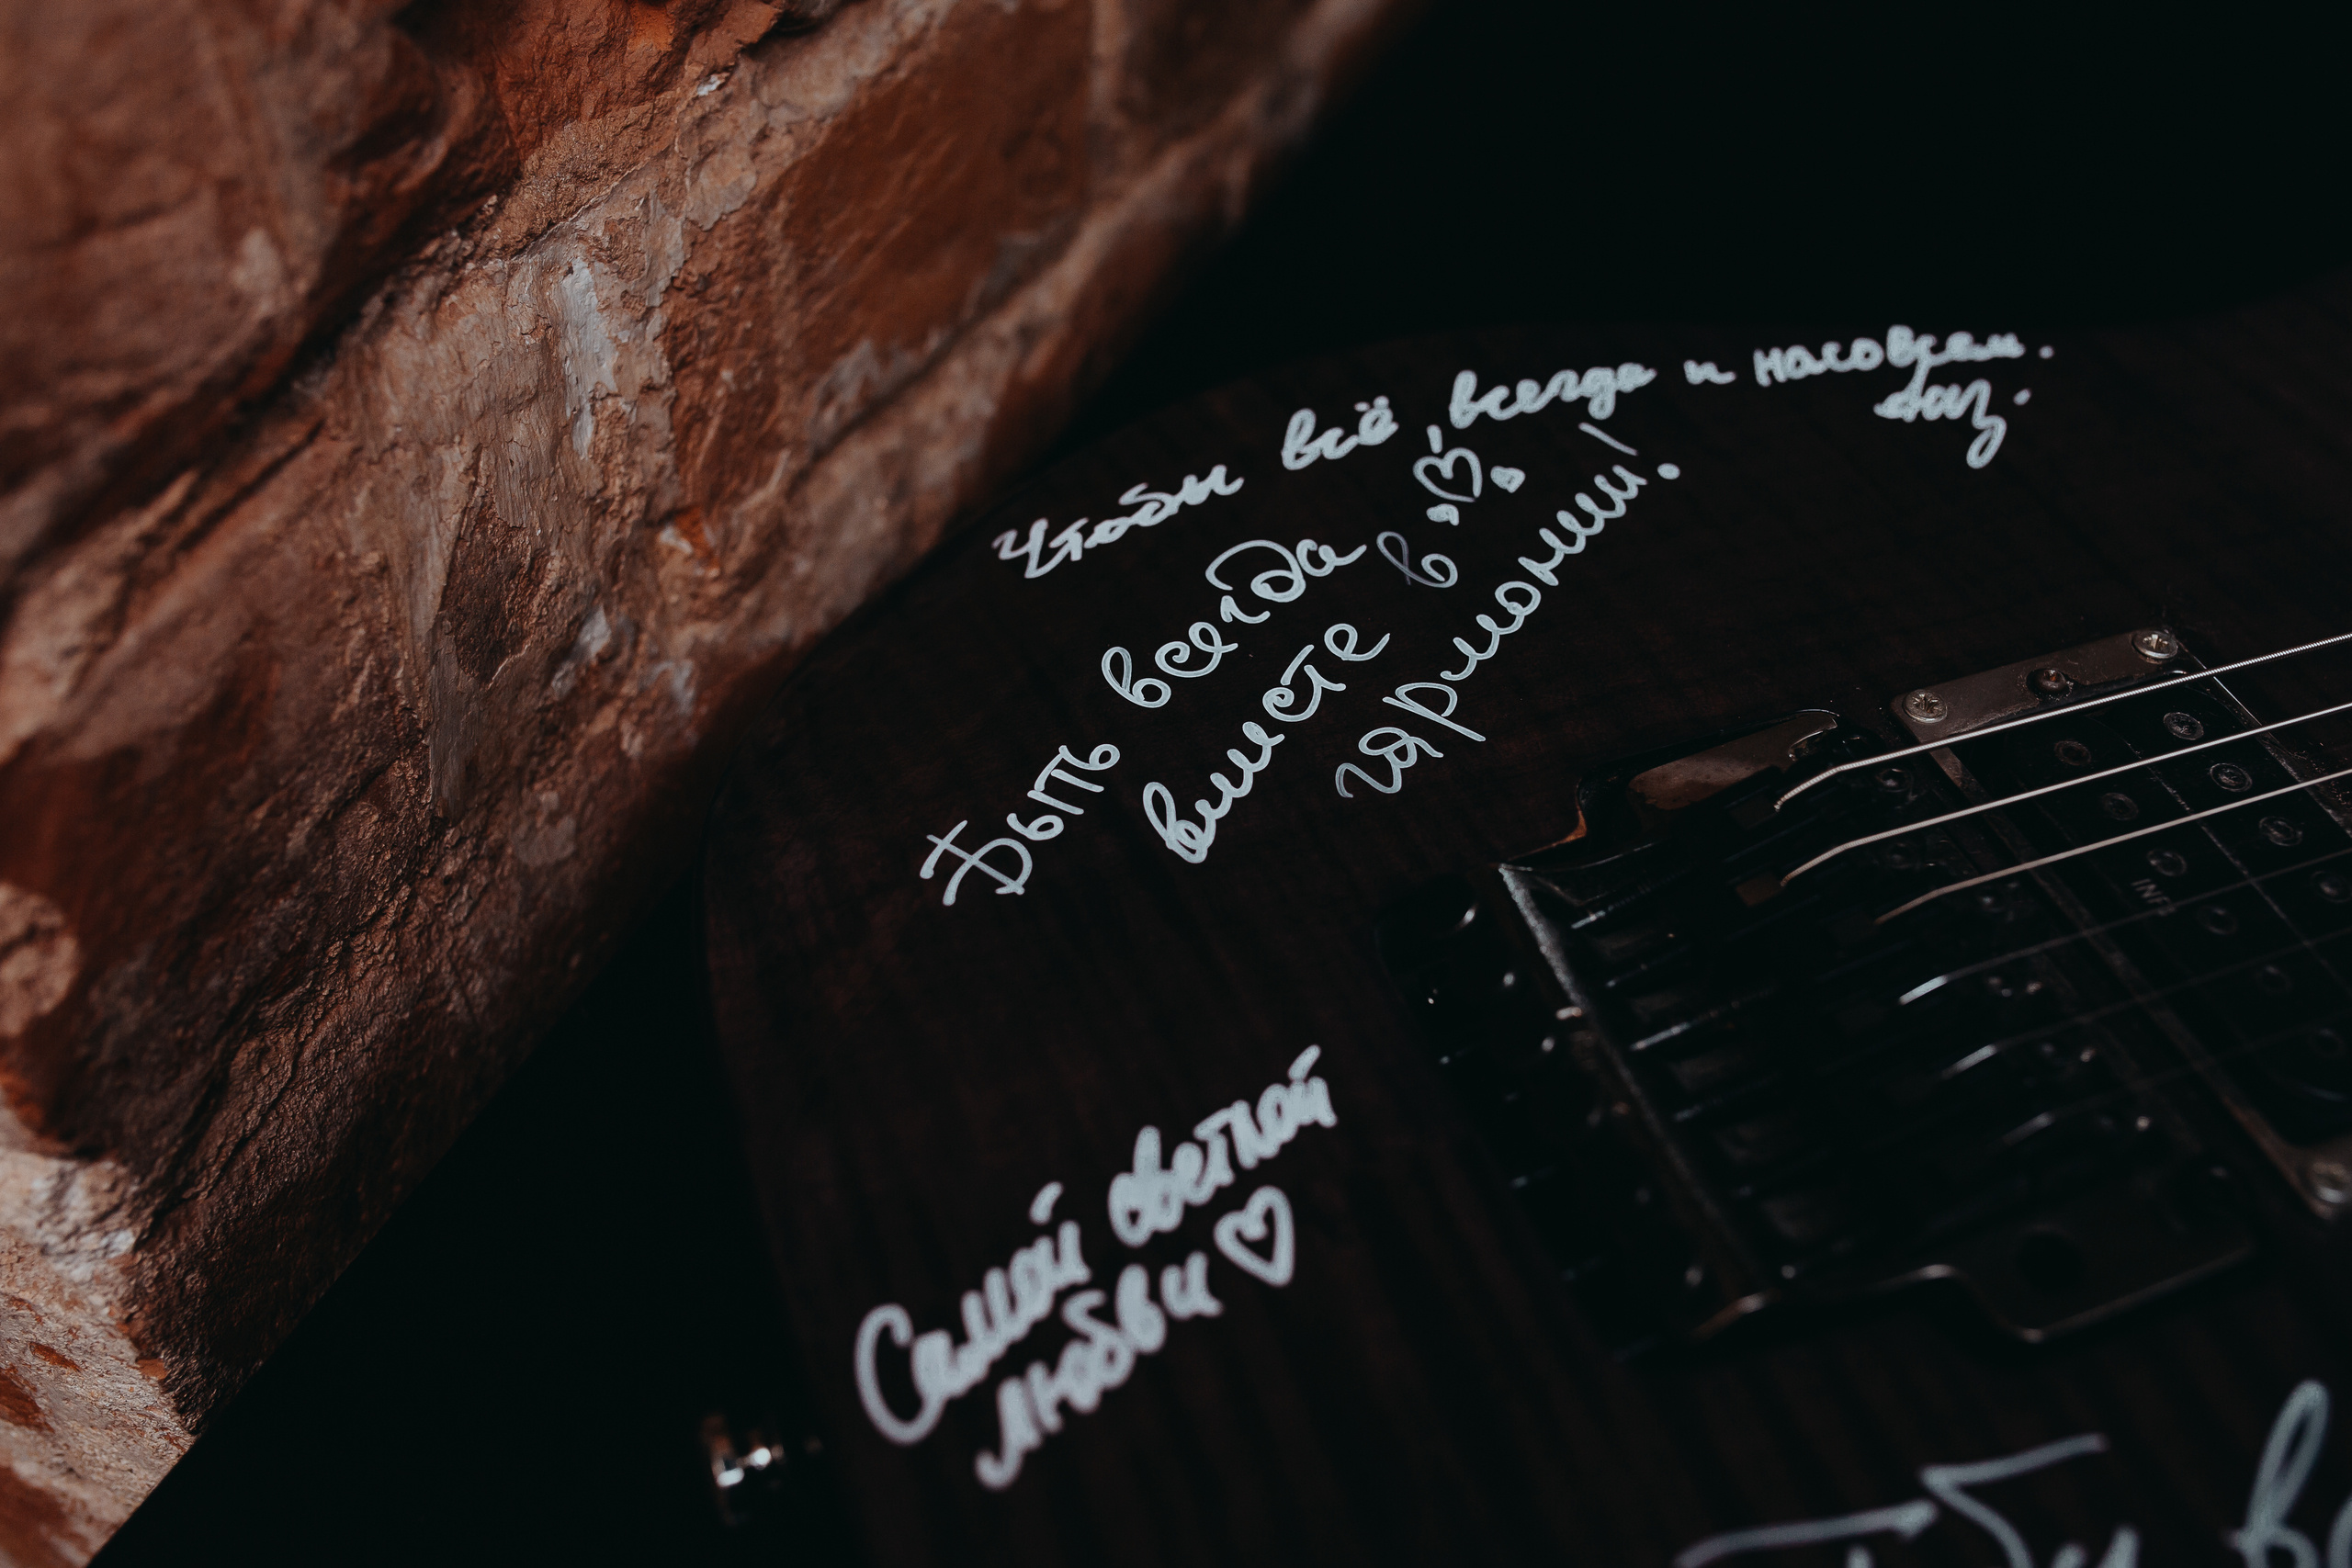 Чтобы всё, всегда и насовсем.
Быть всегда
вместе в
гармонии!
Самой светлой
любви